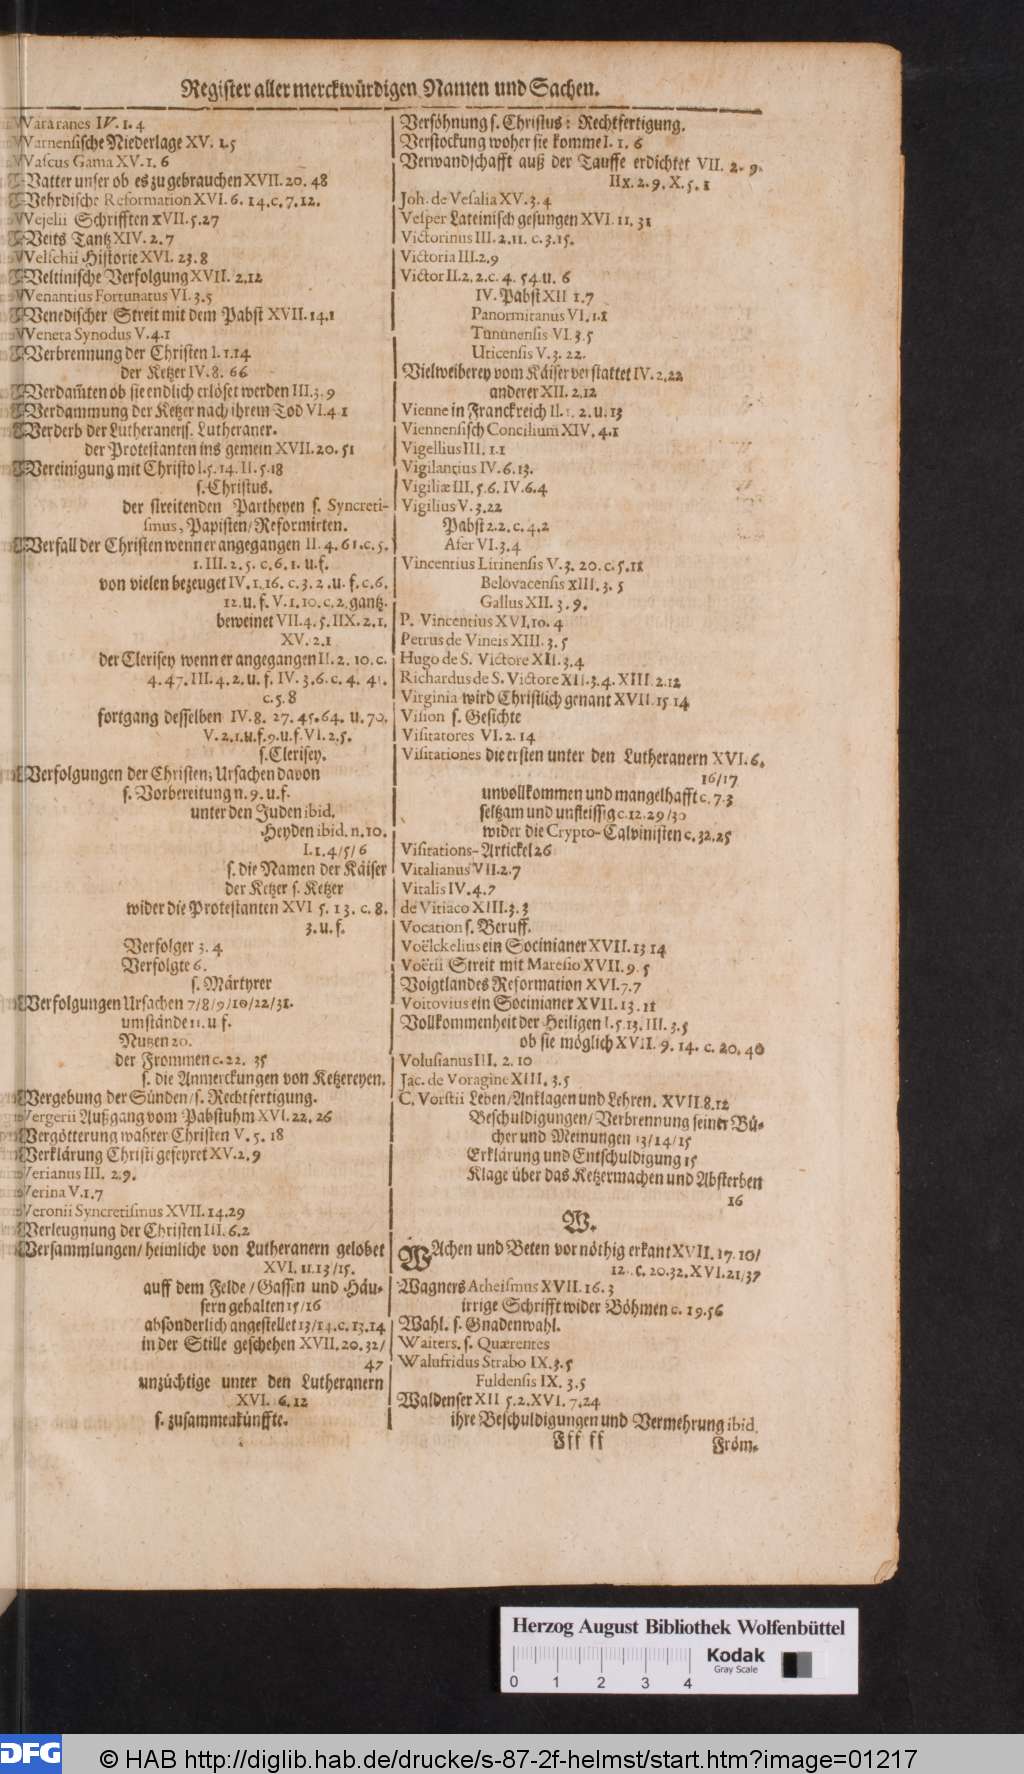 Register aller merckwürdigen Namen und Sachen.
Vararanes IV. 1. 4
Varnensische Niederlage XV. 1.5
Vascus Gama XV. 1. 6
Vatter unser ob es zu gebrauchen XVII. 20. 48
Vehrdische Reformation XVI. 6. 14. c. 7. 12.
Vejelii Schrifften XVII. 5. 27
Veits Tantz XIV. 2. 7
Velschii Historie XVI. 23. 8
Veltinische Verfolgung XVII. 2.12
Venantius Fortunatus VI. 3.5
Venedischer Streit mit dem Pabst XVII. 14.1
Veneta Synodus V. 4.1
Verbrennung der Christen I. 1.14
der Ketzer IV. 8. 66
Verdam̃ten ob sie endlich erlöset werden III. 3. 9
Verdammung der Ketzer nach ihrem Tod VI. 4 1
Verderb der Lutheraner/s. Lutheraner.
der Protestanten ins gemein XVII. 20. 51
Vereinigung mit Christo I. 5. 14. II. 5.18
s. Christus.
der streitenden Partheyen s. Syncreti-
smus, Papisten/ Reformirten.
Verfall der Christen wenn er angegangen II. 4. 61. c. 5.
1. III. 2. 5. c. 6. 1. u. f.
von vielen bezeuget IV. 1. 16. c. 3. 2. u. f. c. 6.
12. u. f. V. 1. 10. c. 2. gantz.
beweinet VII. 4. 5. IIX. 2. 1.
XV. 2. 1
der Clerisey wenn er angegangen II. 2. 10. c.
4. 47. III. 4. 2. u. f. IV. 3. 6. c. 4. 41.
c. 5. 8
fortgang desselben IV. 8. 27. 45. 64. u. 70.
V. 2. 1. u. f. 9. u. f. VI. 2. 5.
s. Clerisey.
Verfolgungen der Christen; Ursachen davon
s. Vorbereitung n. 9. u. f.
unter den Juden ibid.
Heyden ibid. n. 10.
I. 1. 4/ 5/ 6
s. die Namen der Käiser
der Ketzer s. Ketzer
wider die Protestanten XVI 5. 13. c. 8.
3. u. f.
Verfolger 3. 4
Verfolgte 6.
s. Märtyrer
Verfolgungen Ursachen 7/ 8/ 9/ 10/ 22/ 31.
umstände 11. u f.
Nutzen 20.
der Frommen c. 22. 35
s. die Anmerckungen von Ketzereyen.
Vergebung der Sünden/ s. Rechtfertigung.
Vergerii Außgang vom Pabstuhm XVI. 22. 26
Vergötterung wahrer Christen V. 5. 18
Verklärung Christi gefeyret XV. 2. 9
Verianus III. 2. 9.
Verina V. 1. 7
Veronii Syncretismus XVII. 14. 29
Verleugnung der Christen III. 6. 2
Versammlungen/ heimliche von Lutheranern gelobet
XVI. 11. 13/ 15.
auff dem Felde/ Gassen und Häu-
sern gehalten 15/ 16
absonderlich angestellet 13/ 14. c. 13. 14
in der Stille geschehen XVII. 20. 32/
47
unzüchtige unter den Lutheranern
XVI. 6. 12
s. zusammenkünffte.
Versöhnung s. Christus: Rechtfertigung.
Verstockung woher sie komme I. 1. 6
Verwandschafft auß der Tauffe erdichtet VII. 2. 9.
IIX. 2. 9. X. 5. 1
Joh. de Vesalia XV. 3. 4
Vesper Lateinisch gesungen XVI. 11. 31
Victorinus III. 2. 11. c. 3. 15.
Victoria III. 2. 9
Victor II. 2. 2. c. 4. 54. u. 6
IV. Pabst XII 1. 7
Panormitanus VI. 1.1
Tununensis VI. 3. 5
Uticensis V. 3. 22.
Vielweiberey vom Käiser verstattet IV. 2. 22
anderer XII. 2. 12
Vienne in Franckreich II. 1. 2. u. 13
Viennensisch Concilium XIV. 4. 1
Vigellius III. 1. 1
Vigilantius IV. 6. 13.
Vigiliæ III. 5. 6. IV. 6. 4
Vigilius V. 3. 22
Pabst 2. 2. c. 4. 2
Afer VI. 3. 4
Vincentius Lirinensis V. 3. 20. c. 5. 11
Belovacensis XIII. 3. 5
Gallus XII. 3. 9.
P. Vincentius XVI. 10. 4
Petrus de Vineis XIII. 3. 5
Hugo de S. Victore XII. 3. 4
Richardus de S. Victore XII. 3. 4. XIII. 2. 12
Virginia wird Christlich genant XVII. 15 14
Vision s. Gesichte
Visitatores VI. 2. 14
Visitationes die ersten unter den Lutheranern XVI. 6.
16/ 17
unvollkommen und mangelhafft c. 7. 3
seltzam und unfleissig c. 12. 29/ 30
wider die Crypto-Calvinisten c. 32. 25
Visitations-Artickel 26
Vitalianus VII. 2. 7
Vitalis IV. 4. 7
de Vitiaco XIII. 3. 3
Vocation s. Beruff.
Voëlckelius ein Socinianer XVII. 13 14
Voëtii Streit mit Maresio XVII. 9. 5
Voigtlandes Reformation XVI. 7. 7
Voitovius ein Socinianer XVII. 13. 11
Vollkommenheit der Heiligen I. 5. 13. III. 3. 5
ob sie möglich XVII. 9. 14. c. 20. 40
Volusianus III. 2. 10
Jac. de Voragine XIII. 3. 5
C. Vorstii Leben/ Anklagen und Lehren. XVII. 8. 12
Beschuldigungen/ Verbrennung seiner Bü-
cher und Meinungen 13/ 14/ 15
Erklärung und Entschuldigung 15
Klage über das Ketzermachen und Absterben
16
W.
WAchen und Beten vor nöthig erkant XVII. 17. 10/
12. c. 20. 32. XVI. 21/ 37
Wagners Atheismus XVII. 16. 3
irrige Schrifft wider Böhmen c. 19. 56
Wahl. s. Gnadenwahl.
Waiters. s. Quærentes
Walufridus Strabo IX. 3. 5
Fuldensis IX. 3. 5
Waldenser XII 5. 2. XVI. 7. 24
ihre Beschuldigungen und Vermehrung ibid.
Fff ff
Fröm-
Herzog August Bibliothek Wolfenbüttel
Kodak
Gray Scale
0 1 2 3 4
DFG
© HAB http://diglib.hab.de/drucke/s-87-2f-helmst/start.htm?image=01217